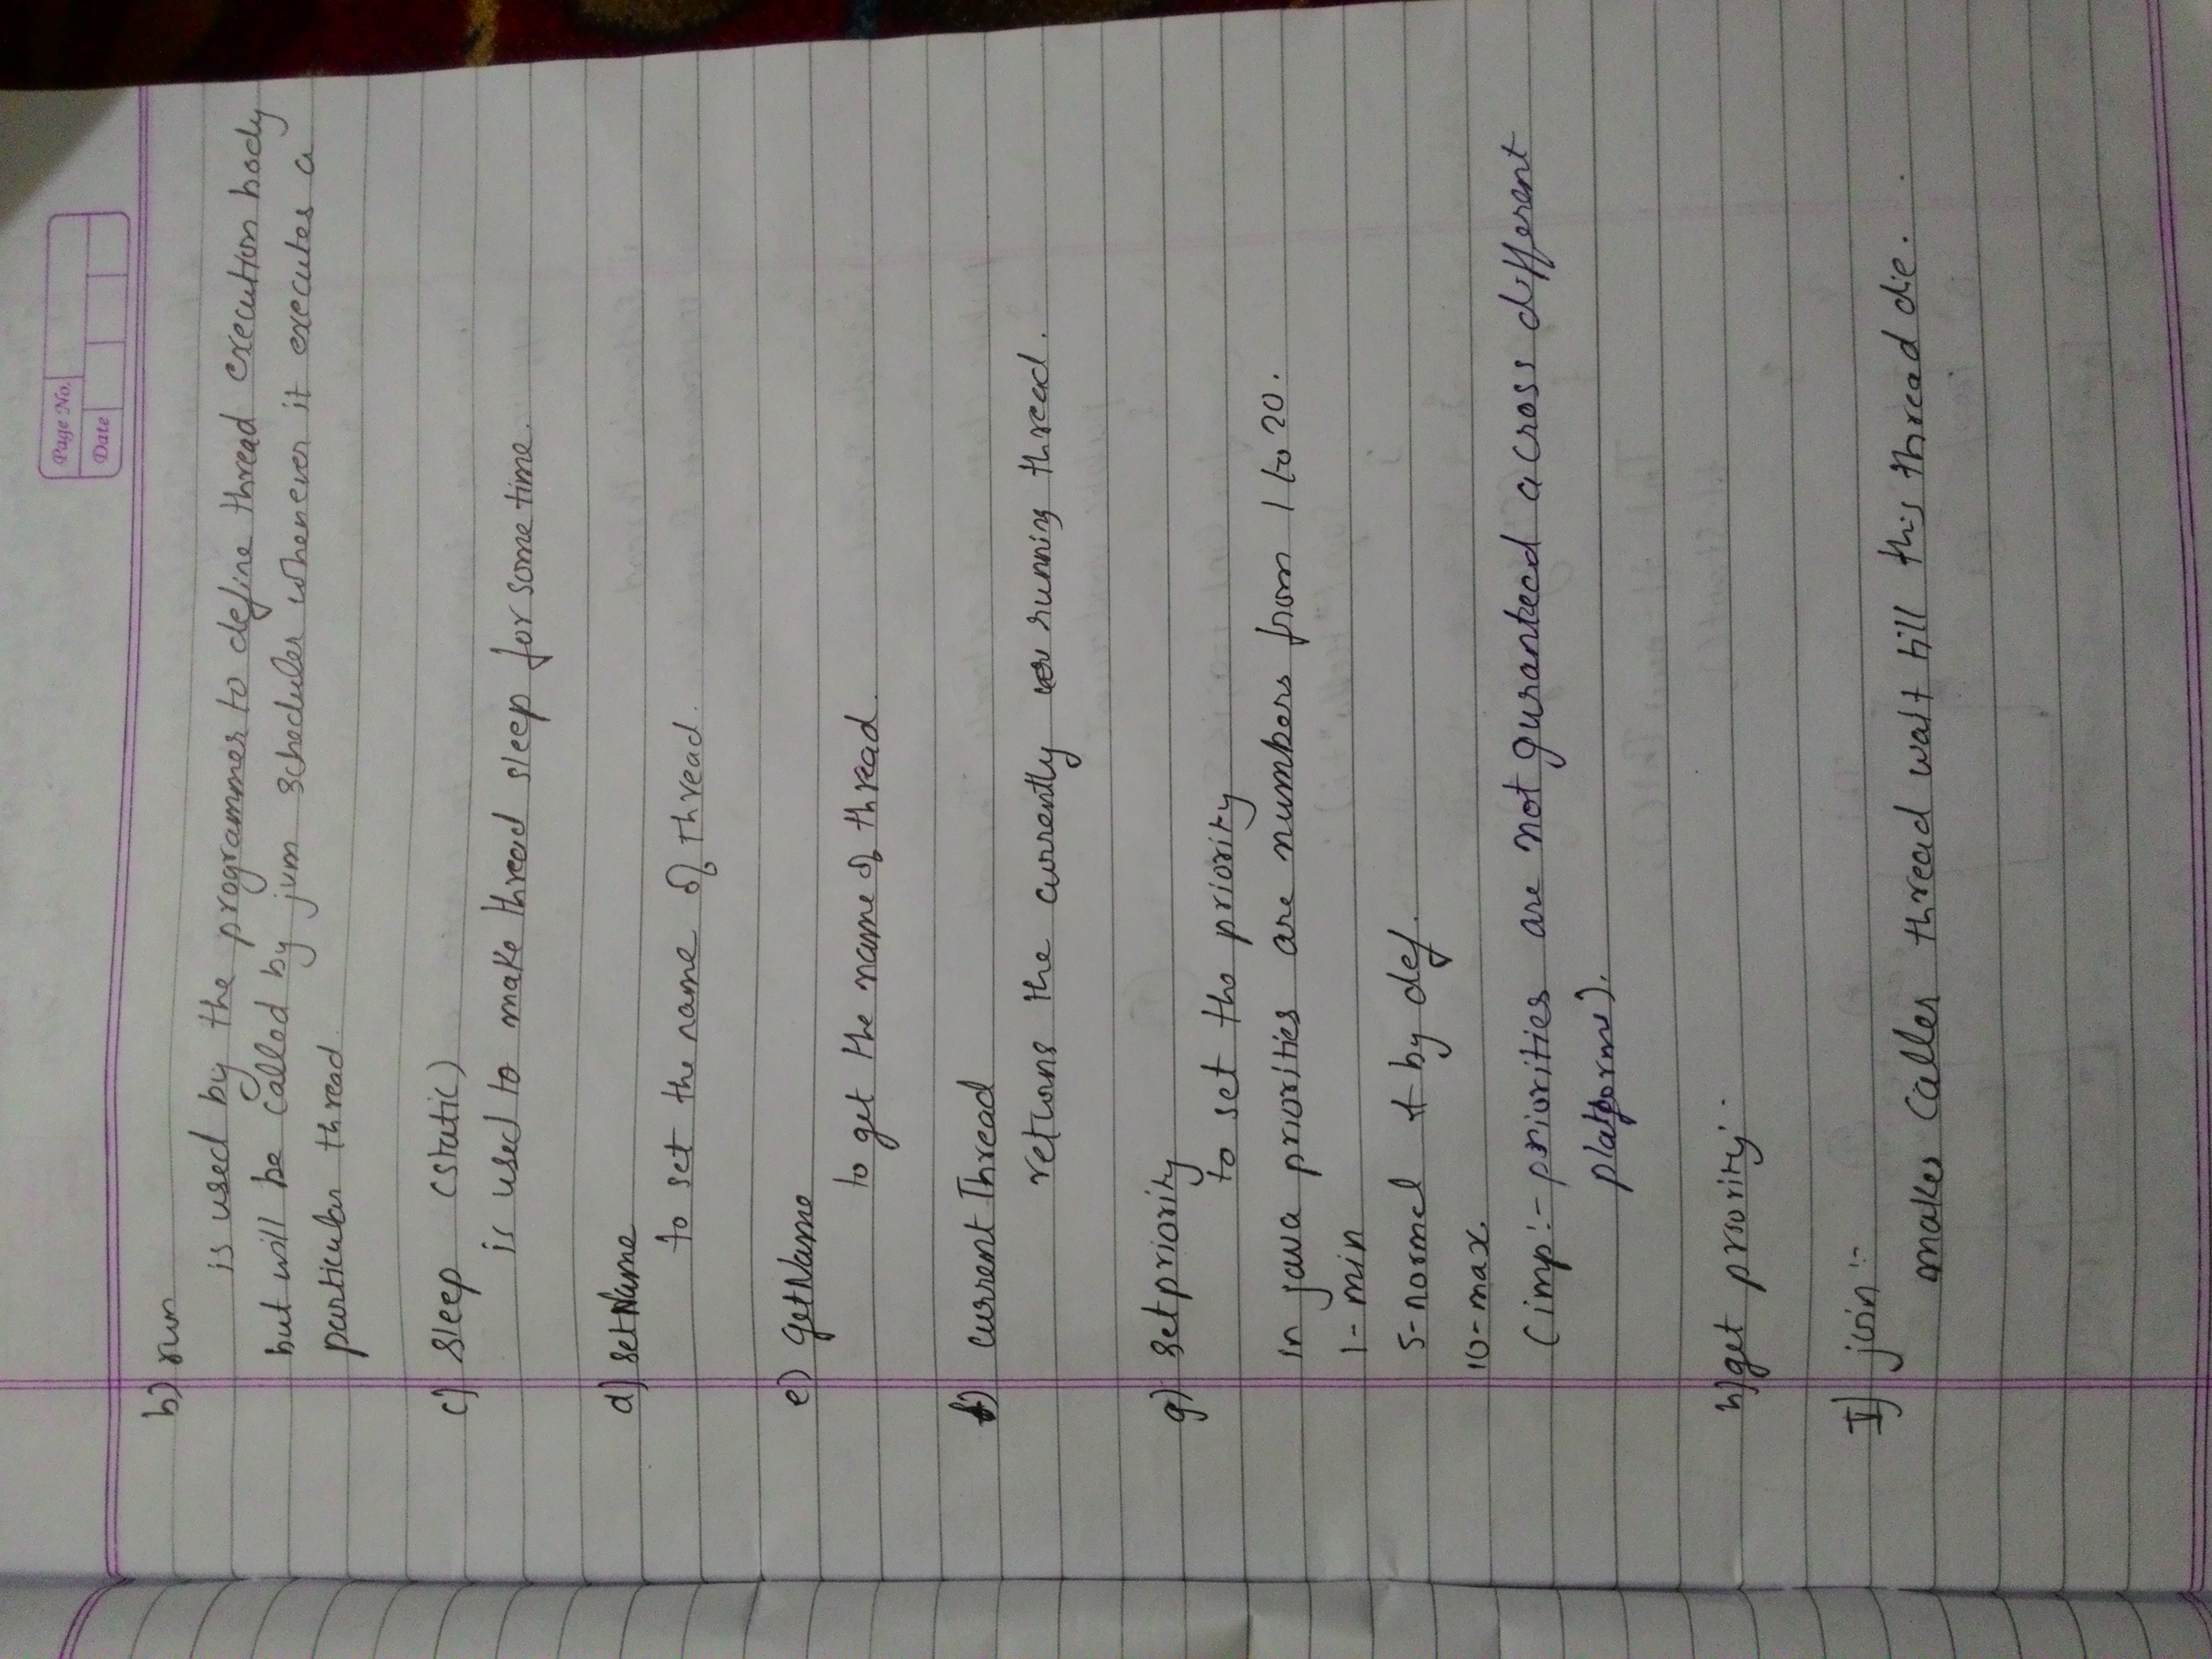 Page No.
Date
b) run
is used by the programmer to define thread execution body
but will be called by jvm scheduler whenever it executes a
particular thread.
c) sleep (static)
is used to make thread sleep for some time.
d) setName
to set the name of thread.
e) getName
to get the name of thread.
f) current Thread
returns the currently running thread.
g) setpriority
to set the priority
in java priorities are numbers from 1 to 20.
1- min
5-normal & by def.
10-max.
(imp:- priorities are not guranteed across different
platforms).
h) get priority
I) join :-
makes caller thread wait till this thread die.